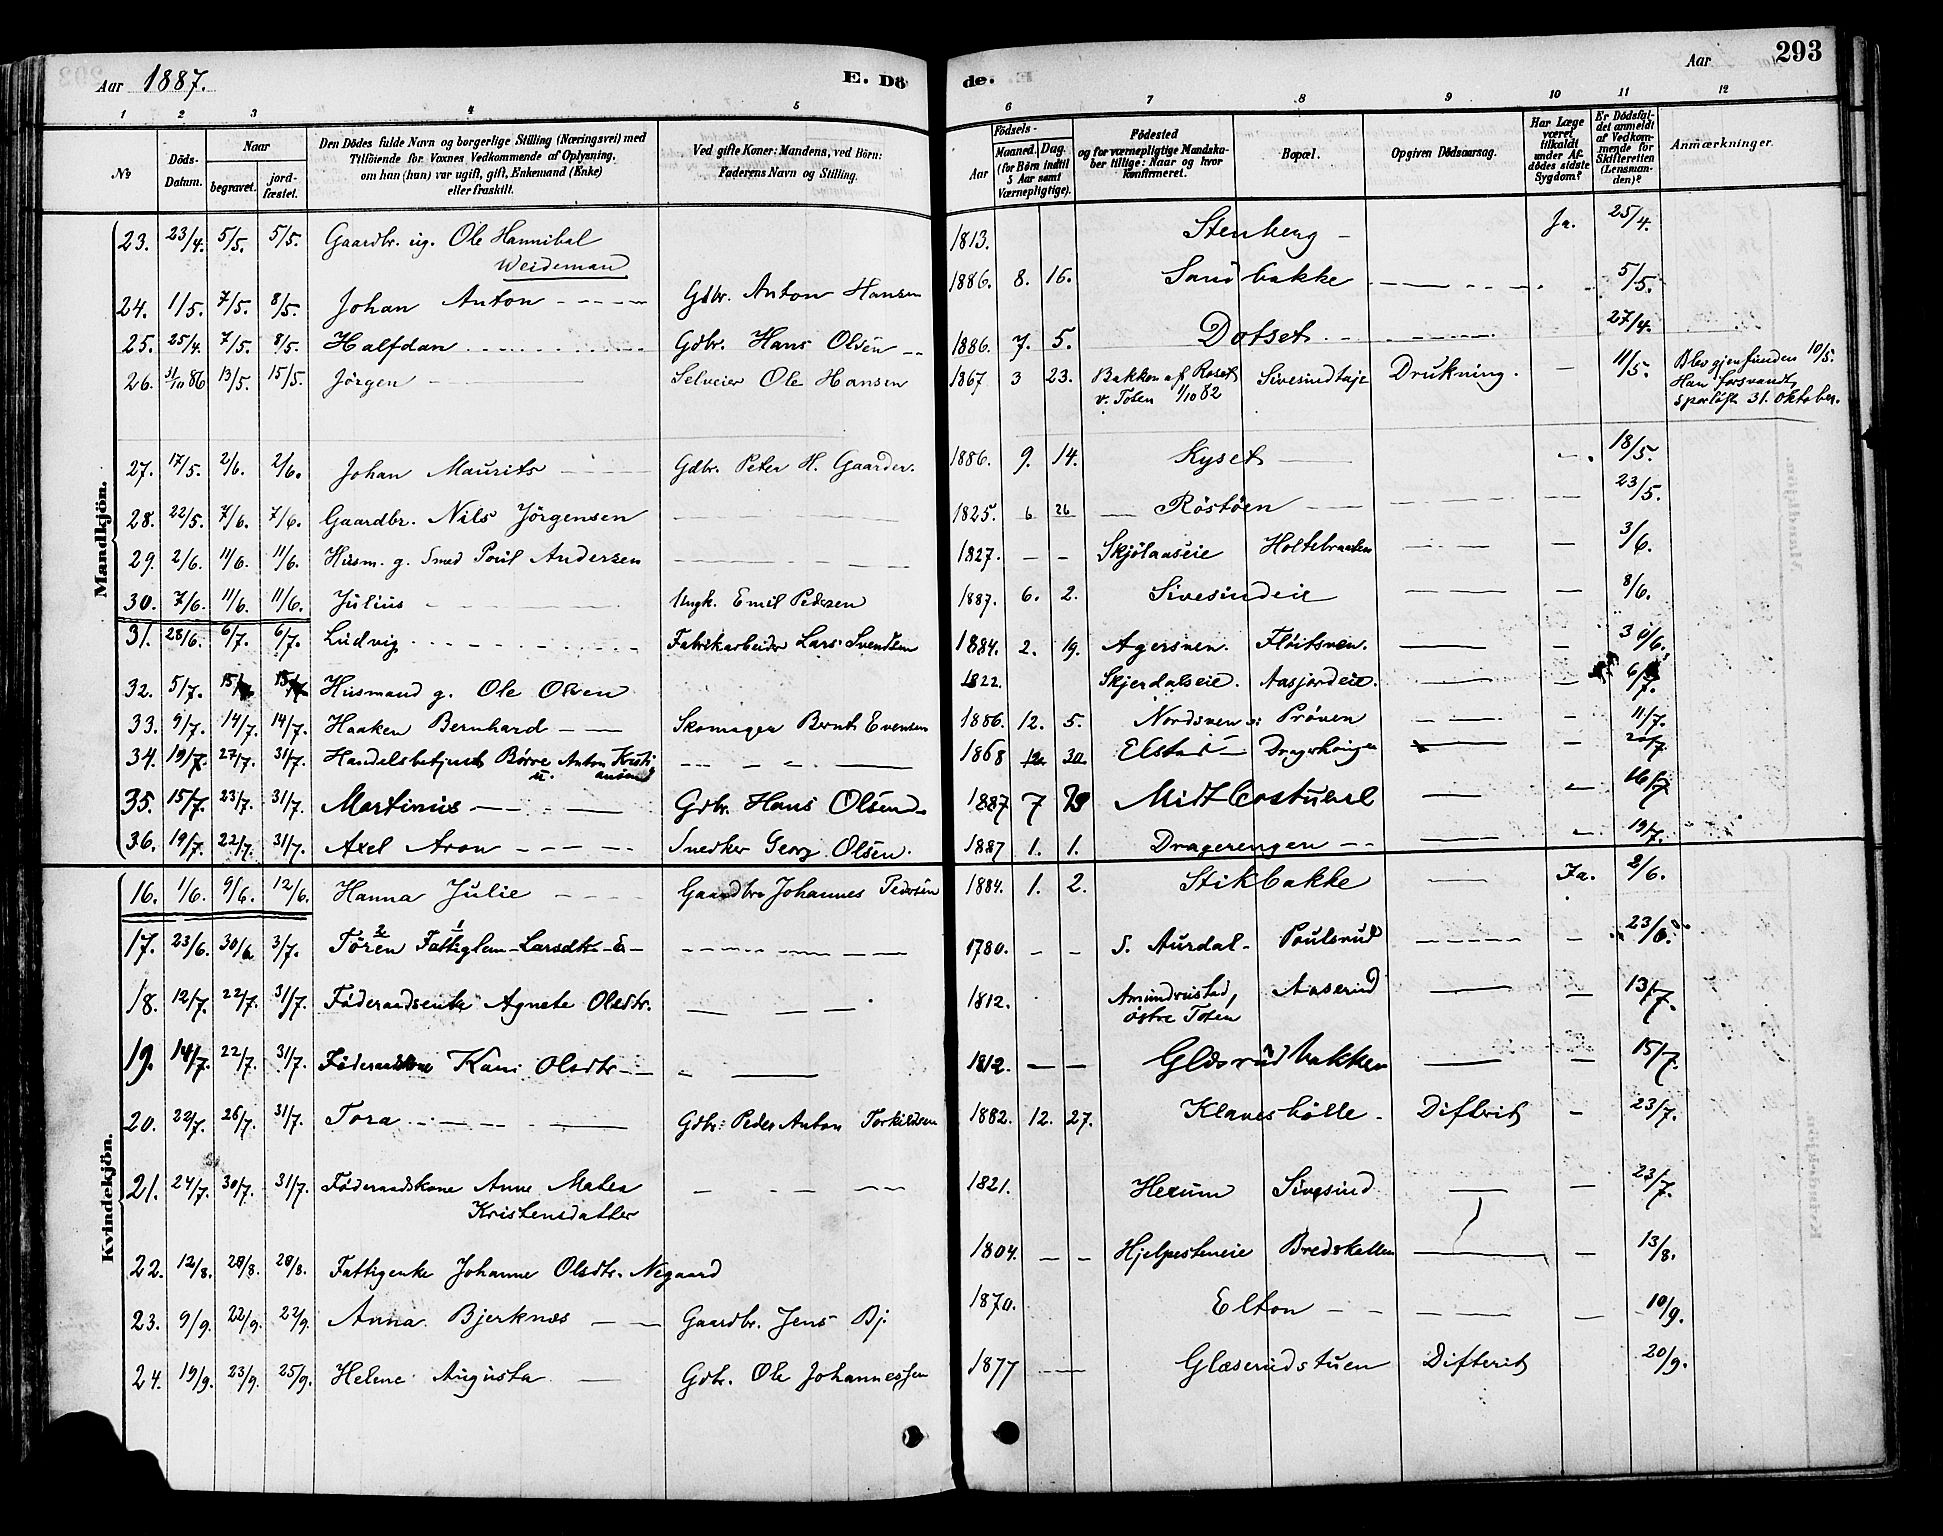 Aar 1887. E. Dö
de. Aar 293
1 2 3 4 5 6 7 8 9 10 11 12
No Döds-Datum. Naar begravet. jordfæstet. Den Dödes fulde Navn og borgerlige Stilling (Næringsvei) med Tilföiende for Voxnes Vedkommende af Oplysning, om han (hun) var ugift, gift, Enkemand (Enke) eller fraskilt. Ved gifte Koner: Mandens, ved Börn: Faderens Navn og Stilling. Födsels- Aar Maaned. Dag. (for Börn indtil 5 Aar samt Værnepligtige). Födested og for værnepligtige Mandskaber tillige: Naar og hvor konfirmeret. Bopæl. Opgiven Dödsaarsag. Har Læge været tilkaldt under Afdödes sidste Sygdom? Er Dödsfaldet anmeldt af Vedkommende for Skifteretten (Lensmanden)? Anmærkninger.
Mandkjön.
23. 23/4. 5/5. 5/5. Gaardbr. ug. Ole Hannibal Weideman 1813. Stenberg - Ja. 25/4.
24. 1/5. 7/5. 8/5. Johan Anton Gdbr. Anton Hansen 1886. 8. 16. Sandbakke 5/5.
25. 25/4. 7/5. 8/5. Halfdan Gdbr. Hans Olsen 1886. 7. 5. Dotset 27/4.
26. 31/10 86 13/5. 15/5. Jörgen Selveier Ole Hansen 1867 3 23. Bakken af Roset v. Toten 1/10 82 Sivesindtaje Drukning. - 11/5. Blev gjenfunden 10/5. Han forsvandt sporløst 31. Oktober.
27. 17/5. 2/6. 2/6. Johan Maurits Gdbr. Peter H. Gaarder. 1886. 9. 14. Kyset 18/5.
28. 22/5. 7/6. 7/6. Gaardbr. Nils Jörgensen 1825. 6 26 Röstöen 23/5.
29. 2/6. 11/6. 11/6. Husm. g. Smed Poul Andersen 1827. - - Skjölaaseie Holtebraaten 3/6.
30. 7/6. 11/6. 11/6. Julius Ungk. Emil Pedersen 1887. 6. 2. Sivesindeie 8/6.
31. 28/6. 6/7. 6/7. Ludvig Fabrikarbeider Lars Svendsen 1884. 2. 19. Agersven. Flöitsven. - 30/6.
32. 5/7. Husmand g. Ole Olsen 1822. Skjerdalseie. Aasjordeie. - 6/7.
33. 9/7. 14/7. 14/7. Haaken Bernhard Skomager Bernt Evensen 1886. 12. 5. Nordsven Pröven - 11/7.
34. 19/7. 27/7. 31/7. Handelsbetjent Börre Anton Kristiansen u. 1868 12. 30. Elstad Dragerhougen 20/7.
35. 15/7. 23/7. 31/7. Martinus Gdbr. Hans Olsen 1887 7 - 16/7
36. 19/7. 22/7. 31/7. Axel Aron Snedker Georg Olsen. 1887 1. 1. Dragerengen 19/7.
Kvindekjön.
16. 1/6. 9/6. 12/6. Hanna Julie Gaardbr. Johannes Pedersen 1884. 1. 2. Stikbakke Ja. 2/6.
17. 23/6. 30/6. 3/7. Tören Fattiglem Larsdtr. E 1780. - - S. Aurdal Poulsrud - 23/6.
18. 12/7. 22/7. 31/7. Föderaadsenke Agnete Olsdtr. 1812. Amundrustad, östre Toten Aaserud - 13/7.
19. 14/7. 22/7. 31/7. Föderaadskone Kari Olsdtr. 1812. - - Glæsrudbakken - 15/7.
20. 22/7. 26/7. 31/7. Tora Gdbr. Peder Anton Torkildsen 1882. 12. 27. Klaneshölle Difterit - 23/7.
21. 24/7. 30/7. 31/7. Föderaadskone Anne Matea Kristensdatter 1821. Hexum Sivesind - 23/7.
22. 12/8. 28/8. 28/8. Fattigenke Johanne Olsdtr. Negaard 1804. - - Hjelpesteneie Bredskallen - 13/8.
23. 9/9. 22/9. 22/9. Anna Bjerknæs Gaardbr. Jens Bj. 1870. Elton - 10/9.
24. 19/9. 23/9. 25/9. Helene Augusta Gdbr. Ole Johannessen 1877 Glæserudstuen Difterit 20/9.